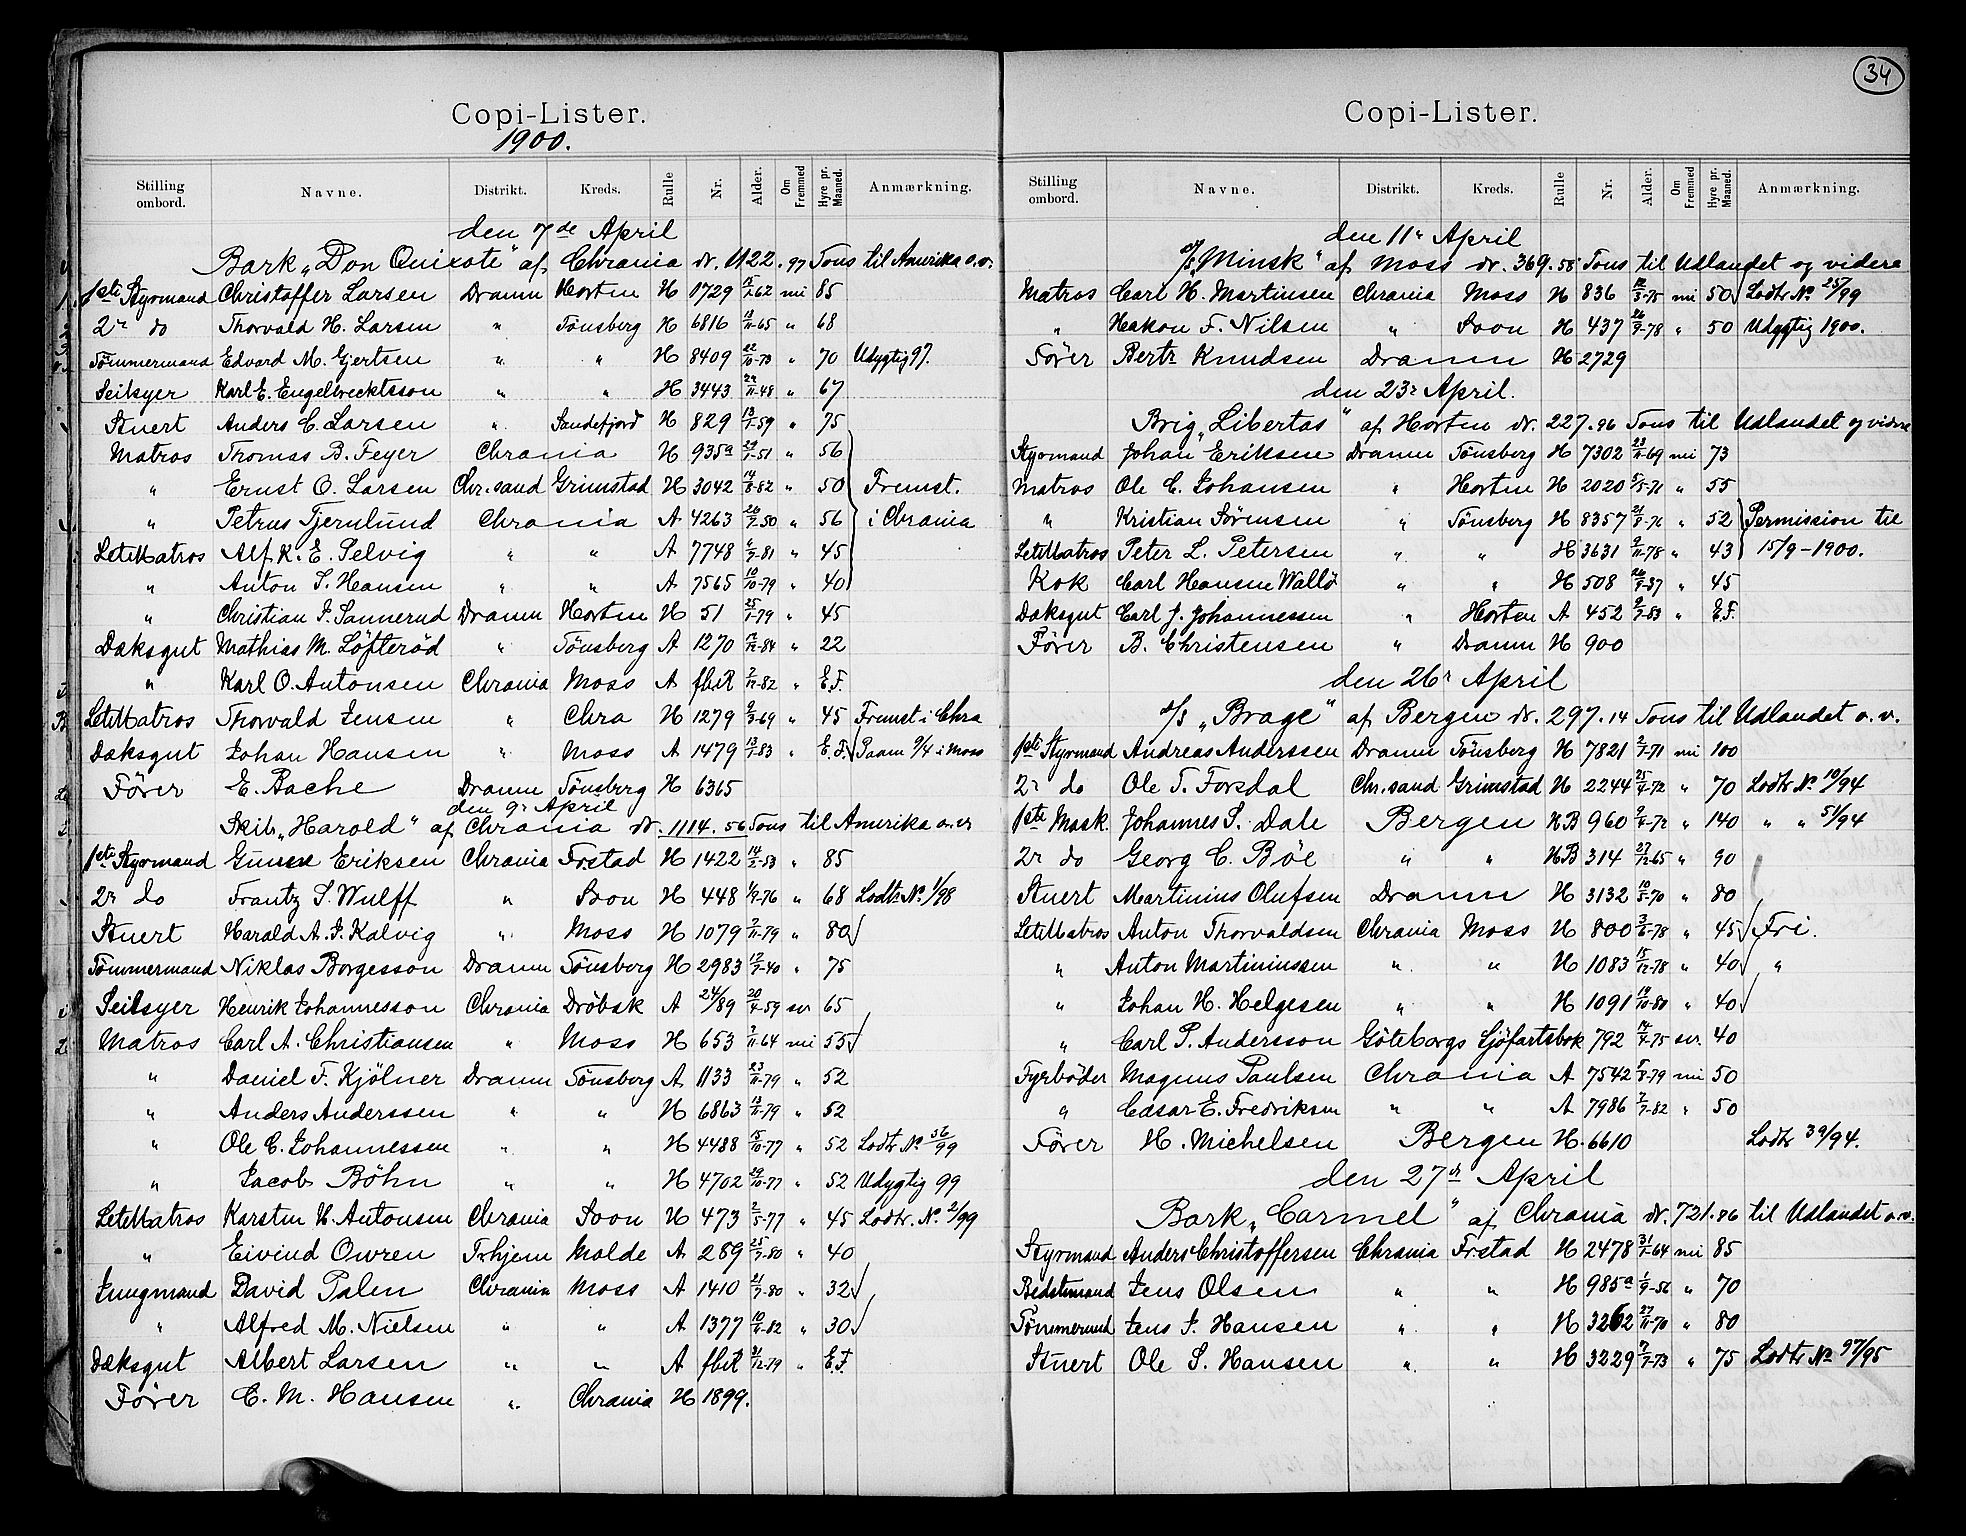 Copi-Lister.
1900.
Stilling ombord. Navne. Distrikt. Kreds. Rulle Nr. Alder. Om Fremmed Hyre pr. Maaned. Anmærkning.
den 7de April
Bark „Don Quixote" af Chrania dr. 1122.97 Tons til Amerika o.v.
1ste Styrmand Christoffer Larsen Dramn Horten H 1729 -62 nei 85
2r do Thorvald H. Larsen " Tönsberg H 6816 13/11-65 " 68
Tömmermand Edvard M. Gjertsen " " H 8409 22/10-73 " 70 Udygtig 97.
Seilsyer Karl E. Engelbrecktsson " " H 3443 24/11-48 " 67
Stuert Anders C. Larsen " Sandefjord H 829 13/1-59 " 75
Matros Thomas B. Feyer Chrania H 935a 29/1-51 " 56
" Ernst O. Larsen Chr.sand Grimstad H 3042 14/8-82 " 50 Fremst.
" Petrus Tjernlund Chrania A 4263 20/7-50 " 56 i Chrania
LetMatros Alf K. E. Selvig " " A 7748 6/9-81 " 45
" Anton S. Hansen " " A 7565 10/10-79 " 40
" Christian F. Sannerud Dramn Horten H 51 25/1-79 " 45
Dæksgut Mathias M. Löfteröd " Tönsberg A 1270 14/12-84 " 22
" Karl O. Antonsen Chrania Moss A fbit 2/11-82 " E.F.
LetMatros Thorvald Jensen " Chra H 1279 9/3-69 " 45 Fremst i Chra
Dæksgut Johan Hansen " Moss A 1479 13/1-83 " E.F. Paam 9/4 i Moss
Förer E. Bache Dramn Tönsberg H 6365
den 9r April
Skib „Harold" af Chrania dr. 1114.56 Tons til Amerika o.v
1ste Styrmand Gunen Eriksen Chrania Frstad H 1422 14/2-53 " 85
2r do Frantz S. Wulff " Soon H 448 1/9-76 " 68 Lodtr. No 1/98
Stuert Harald A. F. Kalvig " Moss H 1079 2/11-79 " 80
Tömmermand Niklas Borgesson Dramn Tönsberg H 2983 12/7-40 " 75
Seilsyer Henrik Johannesson Chrania Dröbak A 24/89 20/4-59 sv 65
Matros Carl A. Christiansen " Moss H 653 7/11-64 nei 55
" Daniel F. Kjölner Dramn Tönsberg A 1133 23/11-79 " 52
" Anders Anderssen " " H 6863 13/11-79 " 52
" Ole C. Johannessen " " H 4488 15/10-77 " 52 Lodtr. No 56/99
" Jacob Böhn " " H 4702 29/10-77 " 52 Udygtig 99
LetMatros Karsten H. Antonsen Chrania Soon H 473 2/5-77 " 45 Lodtr. No. 2/99
" Eivind Owren Trhjem Molde A 289 25/7-80 " 40
Jungmand David Palen Chrania Moss A 1410 21/7-80 " 32
" Alfred M. Nielsen " " A 1377 10/11-82 " 30
Dæksgut Albert Larsen " " A fbit 31/12-79 " E.F.
Förer C. M. Hansen " Chrania H 1899.
34
Copi-Lister.
Stilling ombord. Navne. Distrikt. Kreds. Rulle Nr. Alder. Om Fremmed Hyre pr. Maaned. Anmærkning.
den 11r April
s/s „Minsk" af Moss dr. 369.58 Tons til Udlandet og videre
Matros Carl H. Martinsen Chrania Moss H 836 12/3-75 nei 50 Lodtr No 25/99
" Hakon F. Nilsen " Soon H 437 26/9-78 " 50 Udygtig 1900.
Förer Bertr Knudsen Dramn H 2729
den 23r April.
Brig „Libertas" af Horten dr. 227.96 Tons til Udlandet og videre
Styrmand Johan Eriksen Dramn Tönsberg H 7302 23/11-69 nei 73
Matros Ole C. Johansen " Horten H 2020 5/5-71 " 55
" Kristian Sörensen " Tönsberg H 8357 21/8-76 " 52 Permission til
LetMatros Peter L. Petersen " " H 3631 9/11-78 " 43 15/9-1900.
Kok Carl Hansen Wallö " " H 508 26/8-37 " 45
Dæksgut Carl J. Johannessen " Horten A 452 9/7-83 " E.F.
Förer B. Christensen " Dramn H 900
den 26r April
s/s „Brage" af Bergen dr. 297.14 Tons til Udlandet o.v.
1ste Styrmand Andreas Anderssen Dramn Tönsberg H 7821 2/7-71 nei 100
2r do Ole T. Forsdal Chr.sand Grimstad H 2244 25/4-72 " 70 Lodtr No 10/94
1ste Mask. Johannes S. Dale Bergen HB 960 9/4-72 " 140 " " 51/94
2r do Georg C. Böe " " HB 314 27/12-65 " 90
Stuert Martinius Olufsen Dramn H 3132 10/5-70 " 80
LetMatros Anton Thorvaldsen Chrania Moss H 800 3/6-78 " 45 Fri.
" Anton Martiniussen " " H 1083 15/12-78 " 40 "
" Johan H. Helgesen " " H 1091 19/10-80 " 40
" Carl P. Andersson Göteborgs Sjöfartsbok 792 14/4-75 sv. 40
Fyrböder Magnus Paulsen Chrania A 7542 5/8-79 nei 50
" Cæsar E. Fredriksen " " A 7986 7/7-82 " 50
Förer H. Michelsen Bergen H. 6610 Lodtr 39/94.
den 27r April
Bark „Carmel" af Chrania dr. 721.86 til Udlandet o.v.
Styrmand Anders Christoffersen Chrania Frstad H 2478 31/1-64 nei 85
Bedstemand Jens Olsen " " H 985a 1/9-56 " 70
Tömmermd Jens J. Hansen " " H 3262 27/11-70 " 80
Stuert Ole S. Hansen " " H 3229 7/7-73 " 75 Lodtr No 97/95